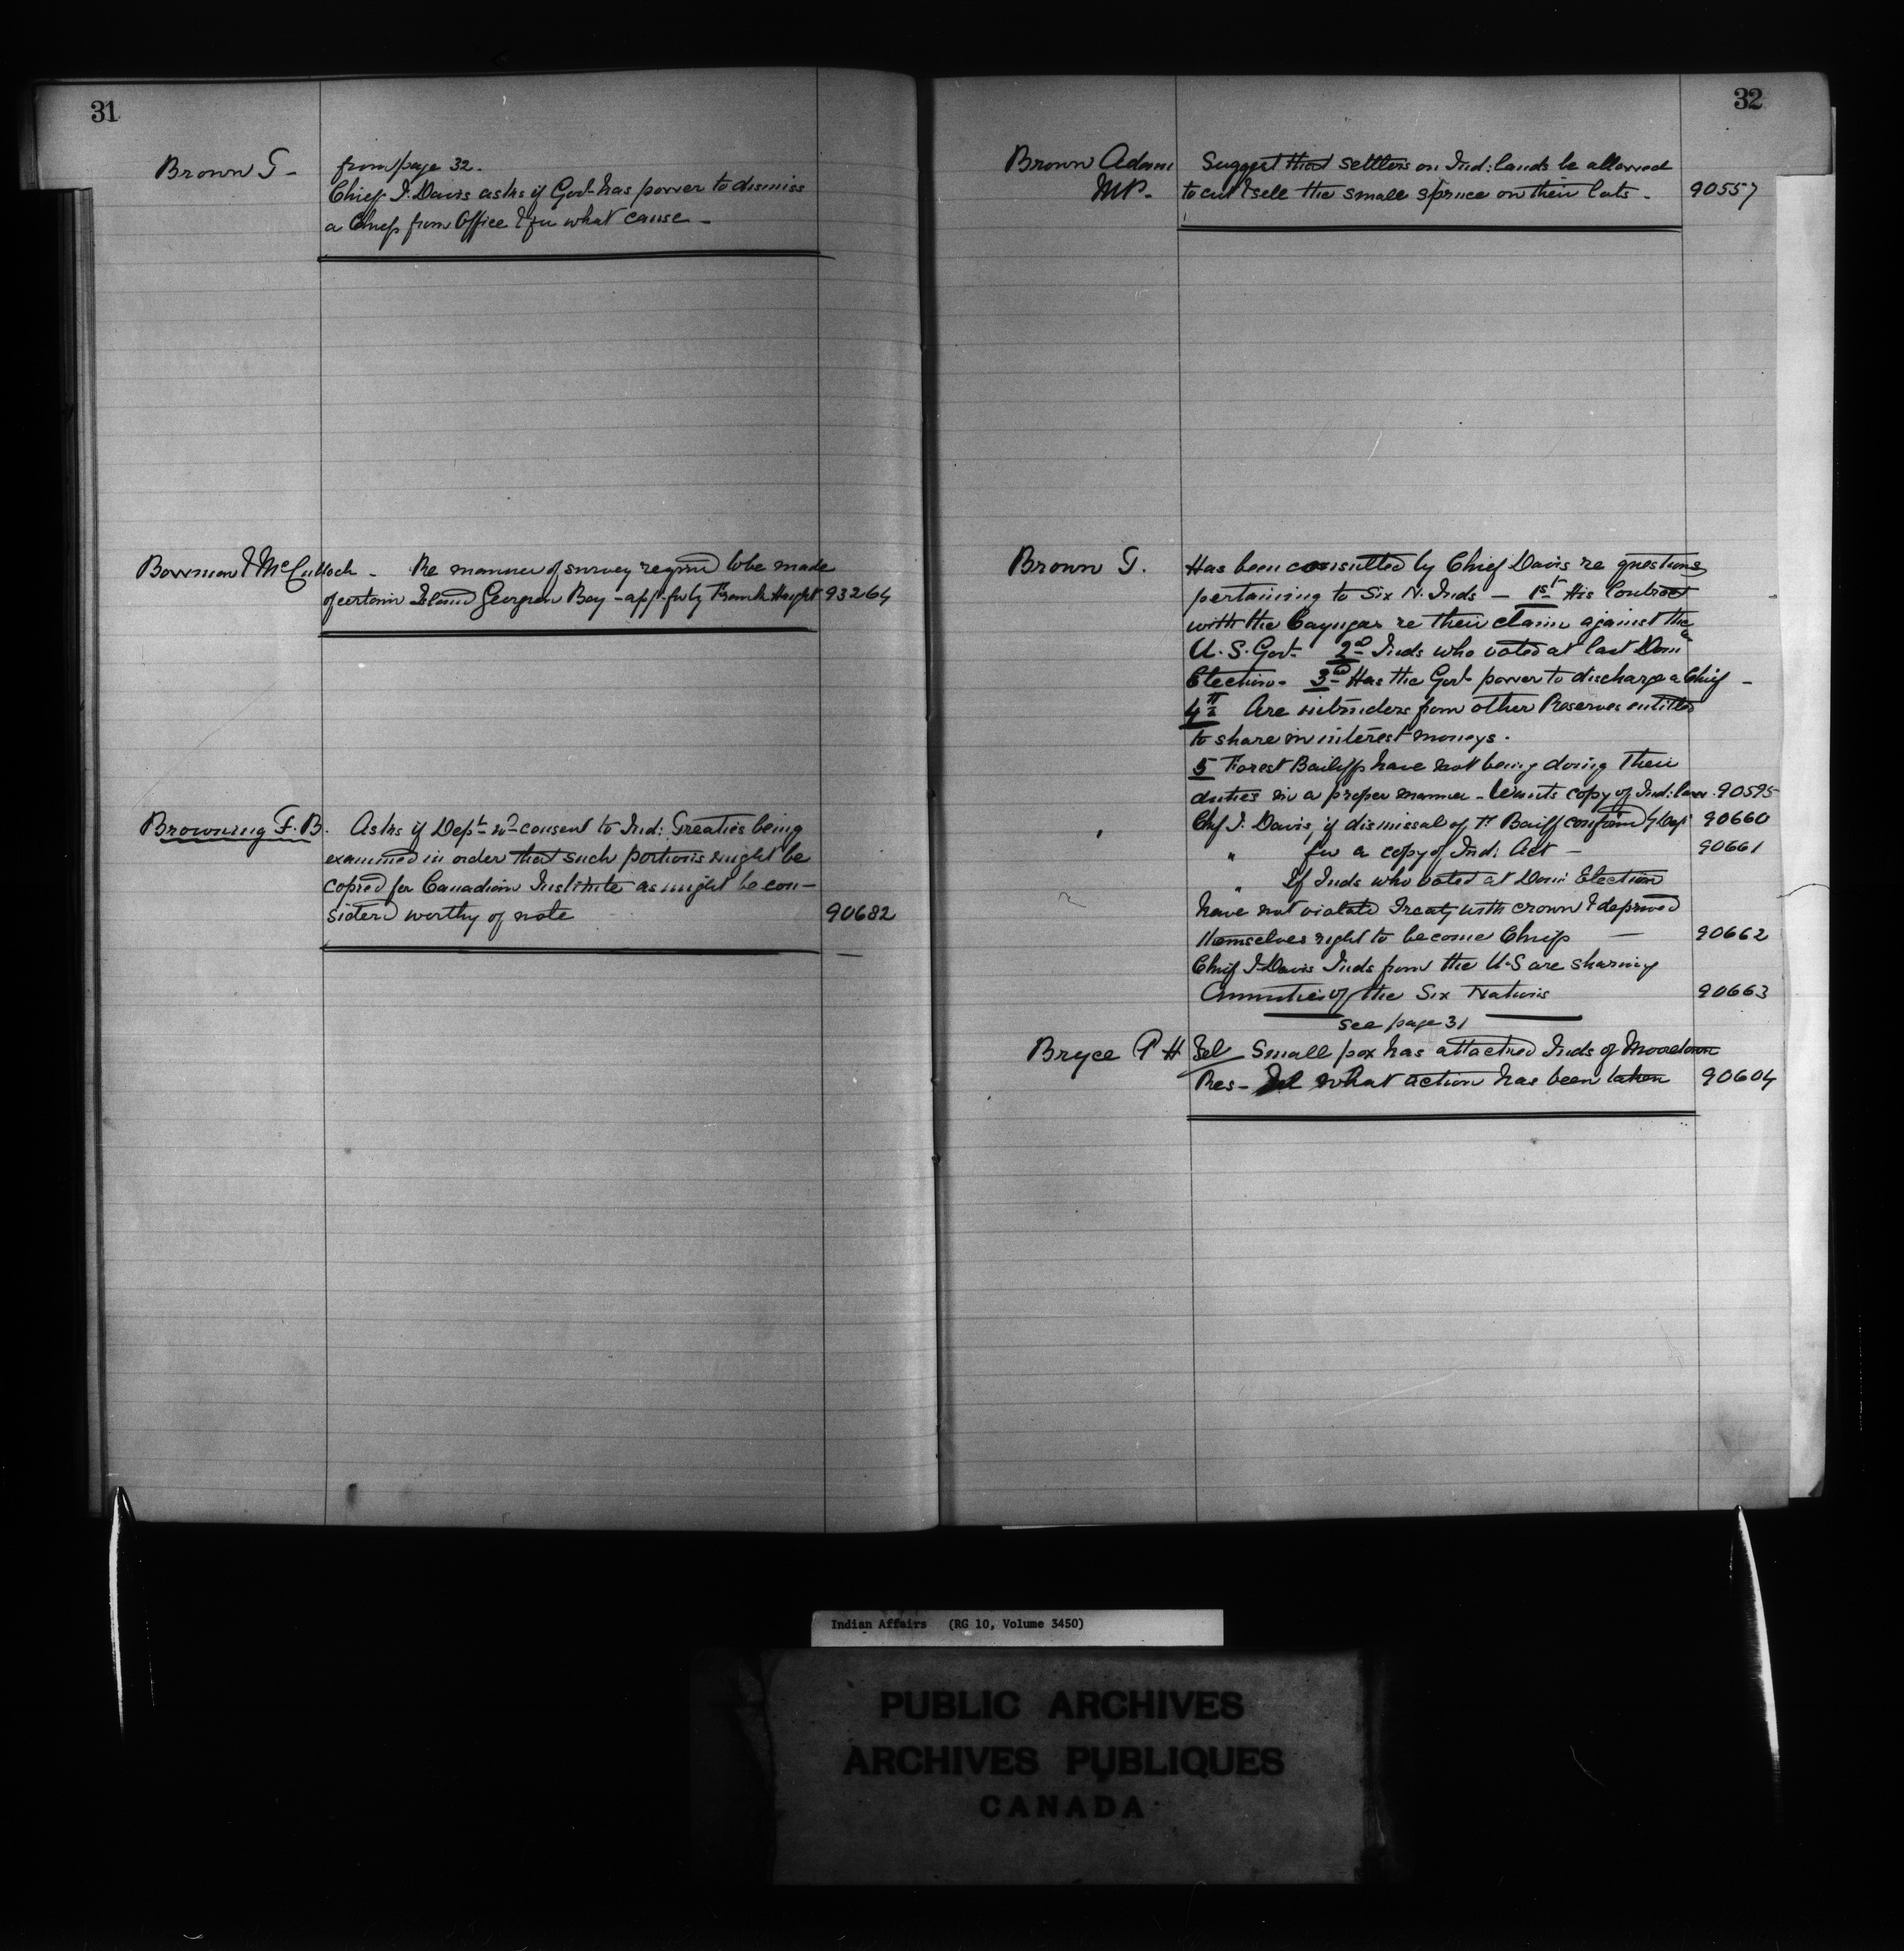 31
Brown G - from page 32.
Chief J. Davis asks if Govt has power to dismiss
a Chief from Office & for what cause -
Bowman & McCulloch - Re manner of survey required to be made
of certain Island Georgian Bay - app. for by Frank Haight 93264
Browning F. B. Asks if Dept wd consent to Ind: Treaties being
examined in order that such portions might be
copied for Canadian Institute as might be con-
sidered worthy of note 90682
32
Brown Adam Suggest that settlers on Ind: lands be allowed
MP. to cut & sell the small spruce on their lots - 90557
Brown G. Has been consulted by Chief Davis re questions
pertaining to Six N. Inds - 1st His Contract
with the Cayugas re their claim against the
U.S. Govt 2nd Inds who voted at last Domn
Election - 3rd Has the Govt power to discharge a Chief -
4th Are intruders from other Reserves entitled
to share in interest moneys.
5 Forest Bailiffs have not being doing their
duties in a proper manner - Wants copy of Ind: law. 90595
Chf J. Davis, if dismissal of Fr Bailff confirmd by Dept 90660
" for a copy of Ind: Act - 90661
" If Inds who voted at Domn Election
have not violated Treaty with crown & deprived
themselves right to become Chiefs - 90662
Chief J. Davis Inds from the U.S are sharing
Annuities of the Six Nations 90663
see page 31
Bryce P H Tel Small pox has attacked Inds of
Res - Tel what action has been taken 90604
Indian Affairs (RG 10, Volume 3450)
PUBLIC ARCHIVES
ARCHIVES PUBLIQUES
CANADA